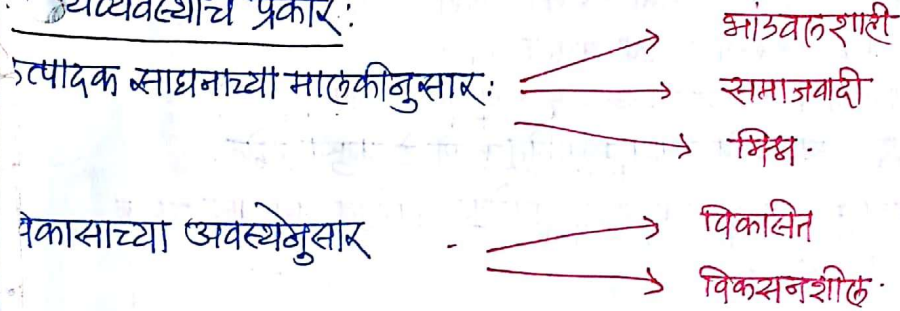 र्थव्यवस्थांचे प्रकार:
उत्पादक साधनाच्या मालकीनुसार:
भांडवलशाही
समाजवादी
मिश्र.
विकासाच्या अवस्थेनुसार -
विकसित
विकसनशील.